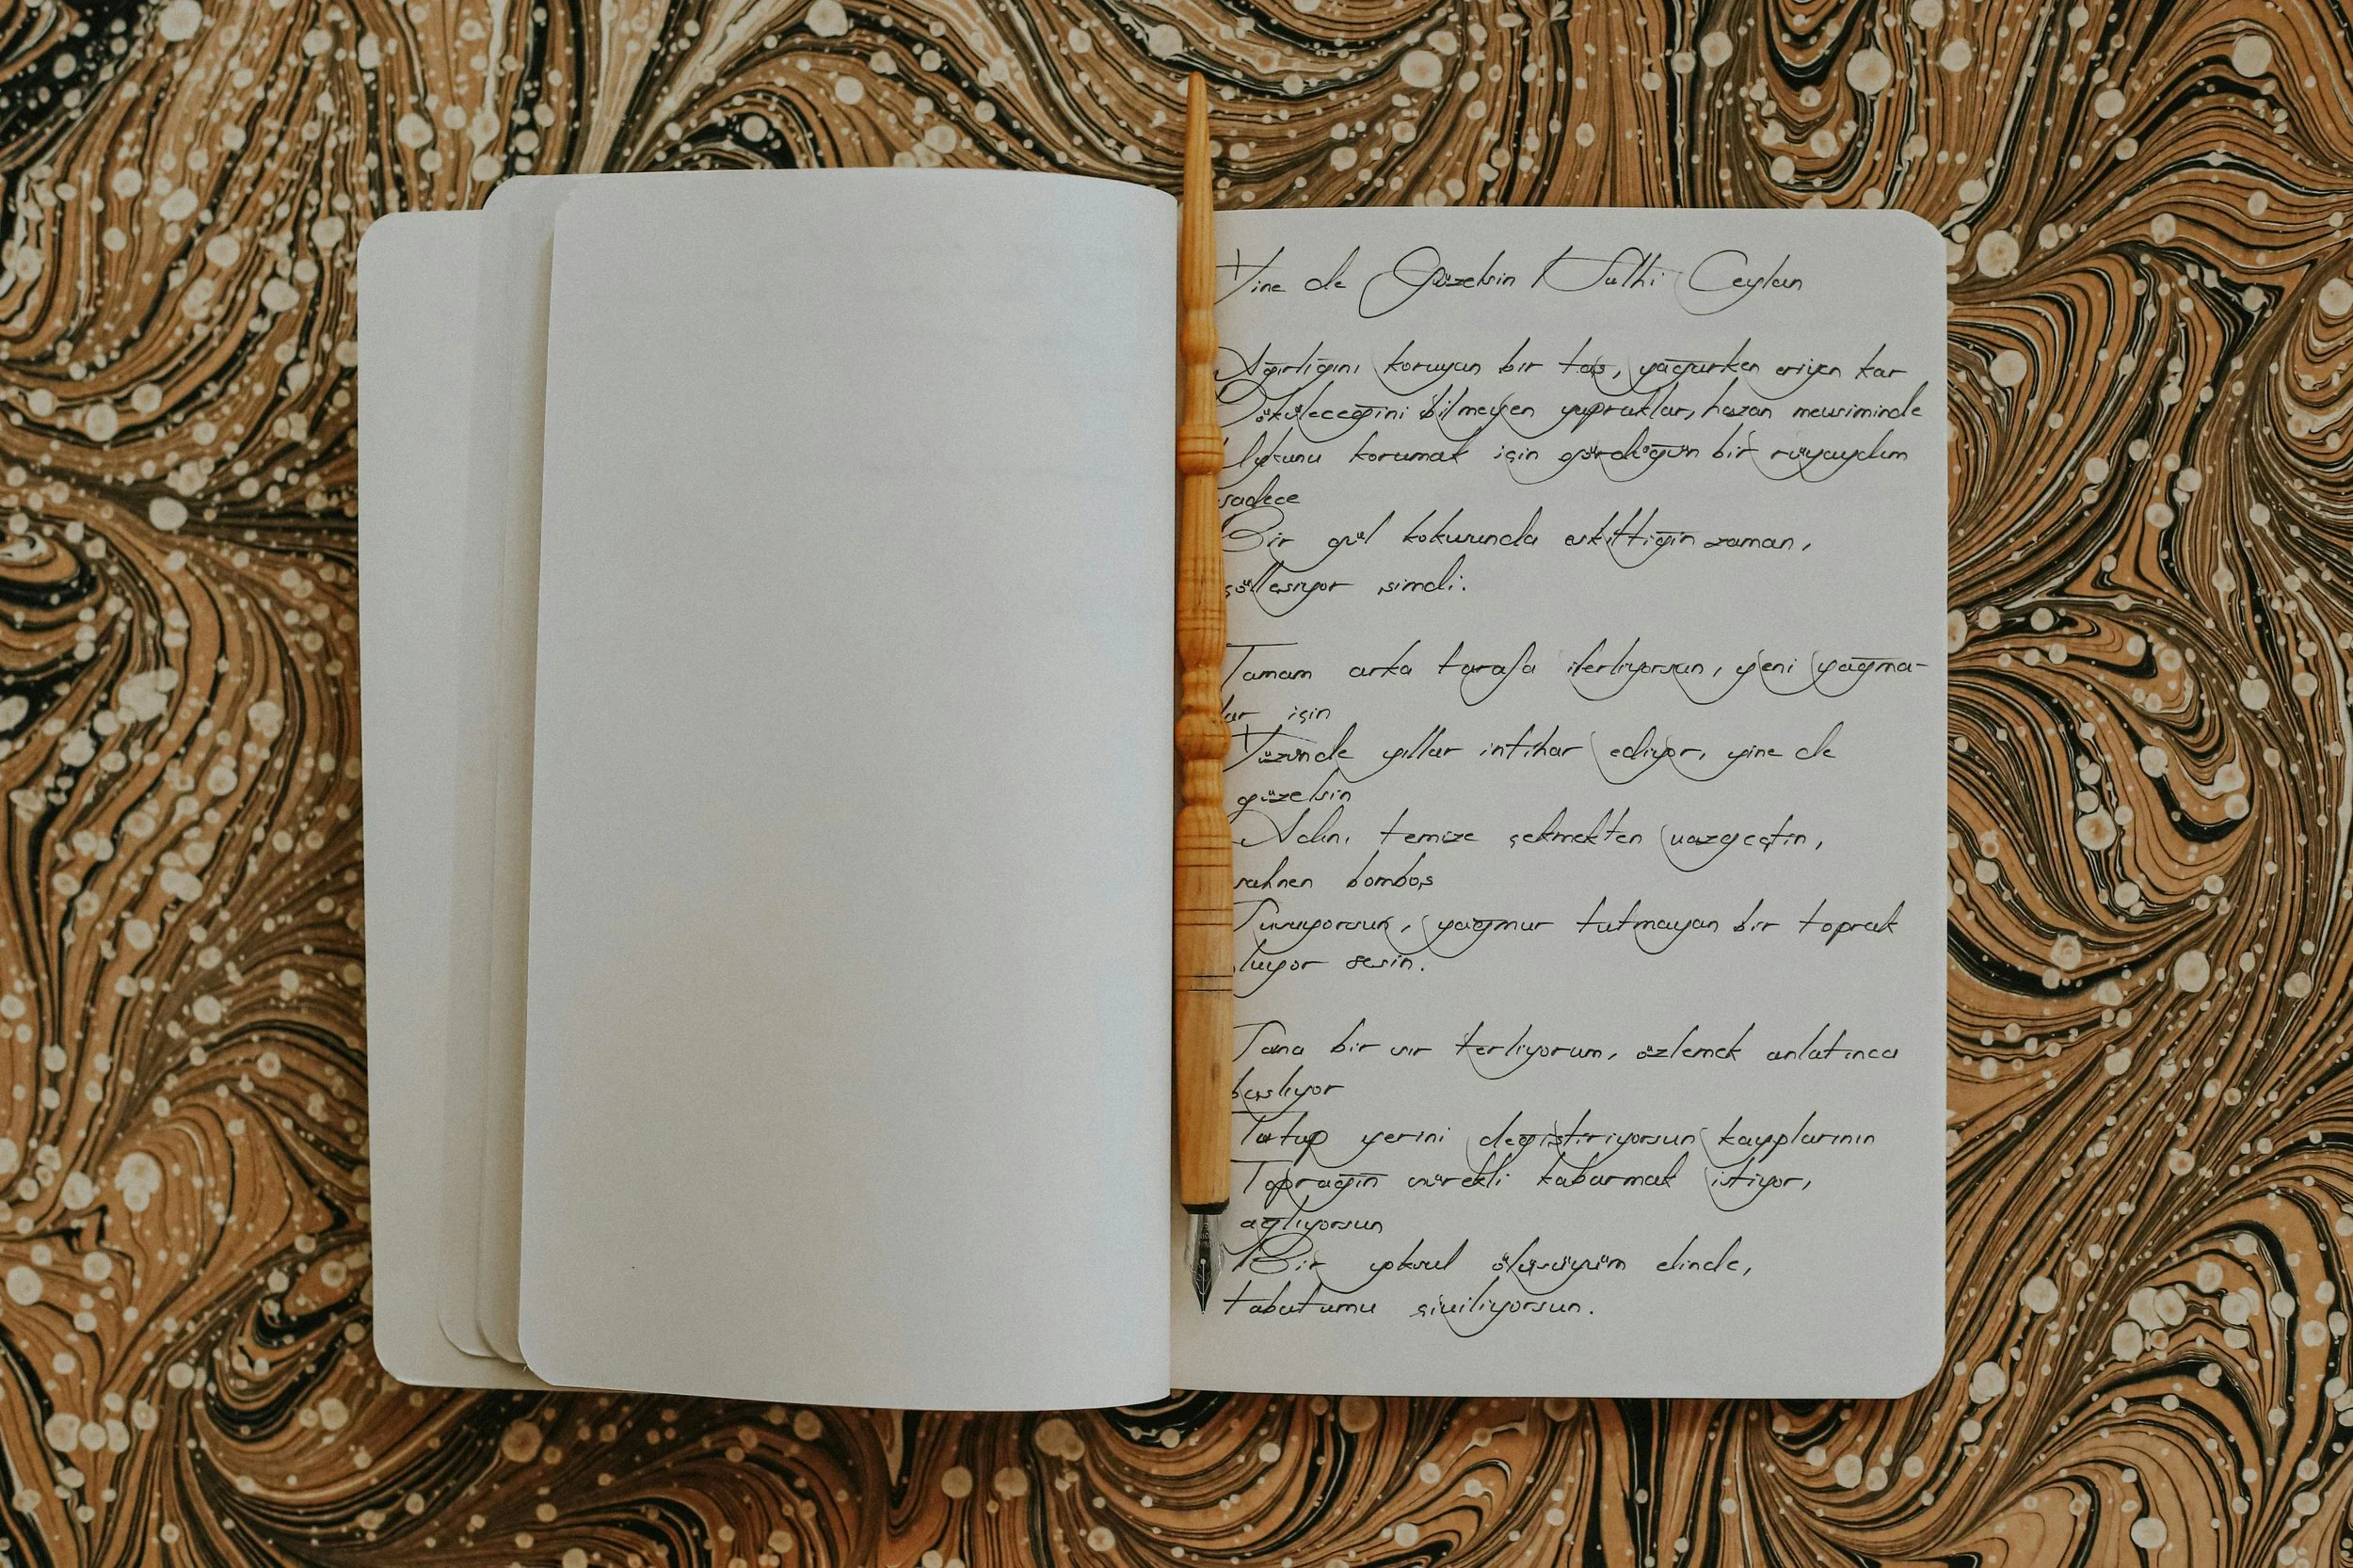 Yine de Güzelsin / Sulhi Ceylan
Ağırlığını koruyan bir taş, yağarken eriyen kar
Döküleceğini bilmeyen yapraklar, hazan mevsiminde
Uykunu korumak için gördüğün bir rüyaydım
sadece
Bir gül kokusunda eskittiğin zaman,
çölleşiyor şimdi.
Tamam arka tarafa ilerliyorsun, yeni yağma-
lar için
Yüzünde yıllar intihar ediyor, yine de
güzelsin
Adını temize çekmekten vazgeçtin,
sahnen bomboş
Susuyorsun, yağmur tutmayan bir toprak
oluyor sesin.
Sana bir sır terliyorum, özlemek anlatınca
başlıyor
Tutup yerini değiştiriyorsun kayıplarının
Toprağın sürekli kabarmak istiyor,
ağlıyorsun
Bir yoksul ölüsüyüm elinde,
tabutumu çiviliyorsun.